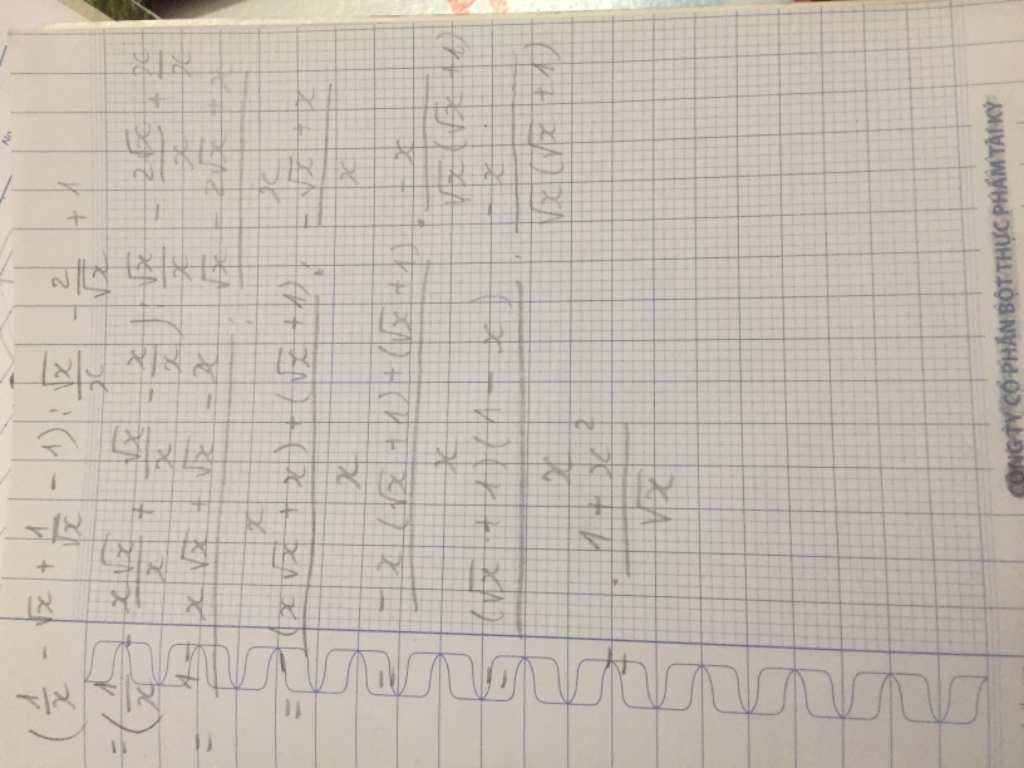 (1/x - √x + 1/√x - 1) : √x/x - 2/√x + 1
= (1/x - x√x/x + √x/x - x/x) : √x/x - 2√x/x + x/x
= 1 - x√x + √x - x / x : √x - 2√x + x / x
= -(x√x + x) + (√x + 1) / x : -√x + x / x
= -x(√x + 1) + (√x + 1) / x . -x / √x(√x + 1)
= (√x + 1)(1 - x) / x . -x / √x(√x + 1)
1 + x² / √x
CÔNG TY CỔ PHẦN BỘT THỰC PHẨM TÀI KÝ